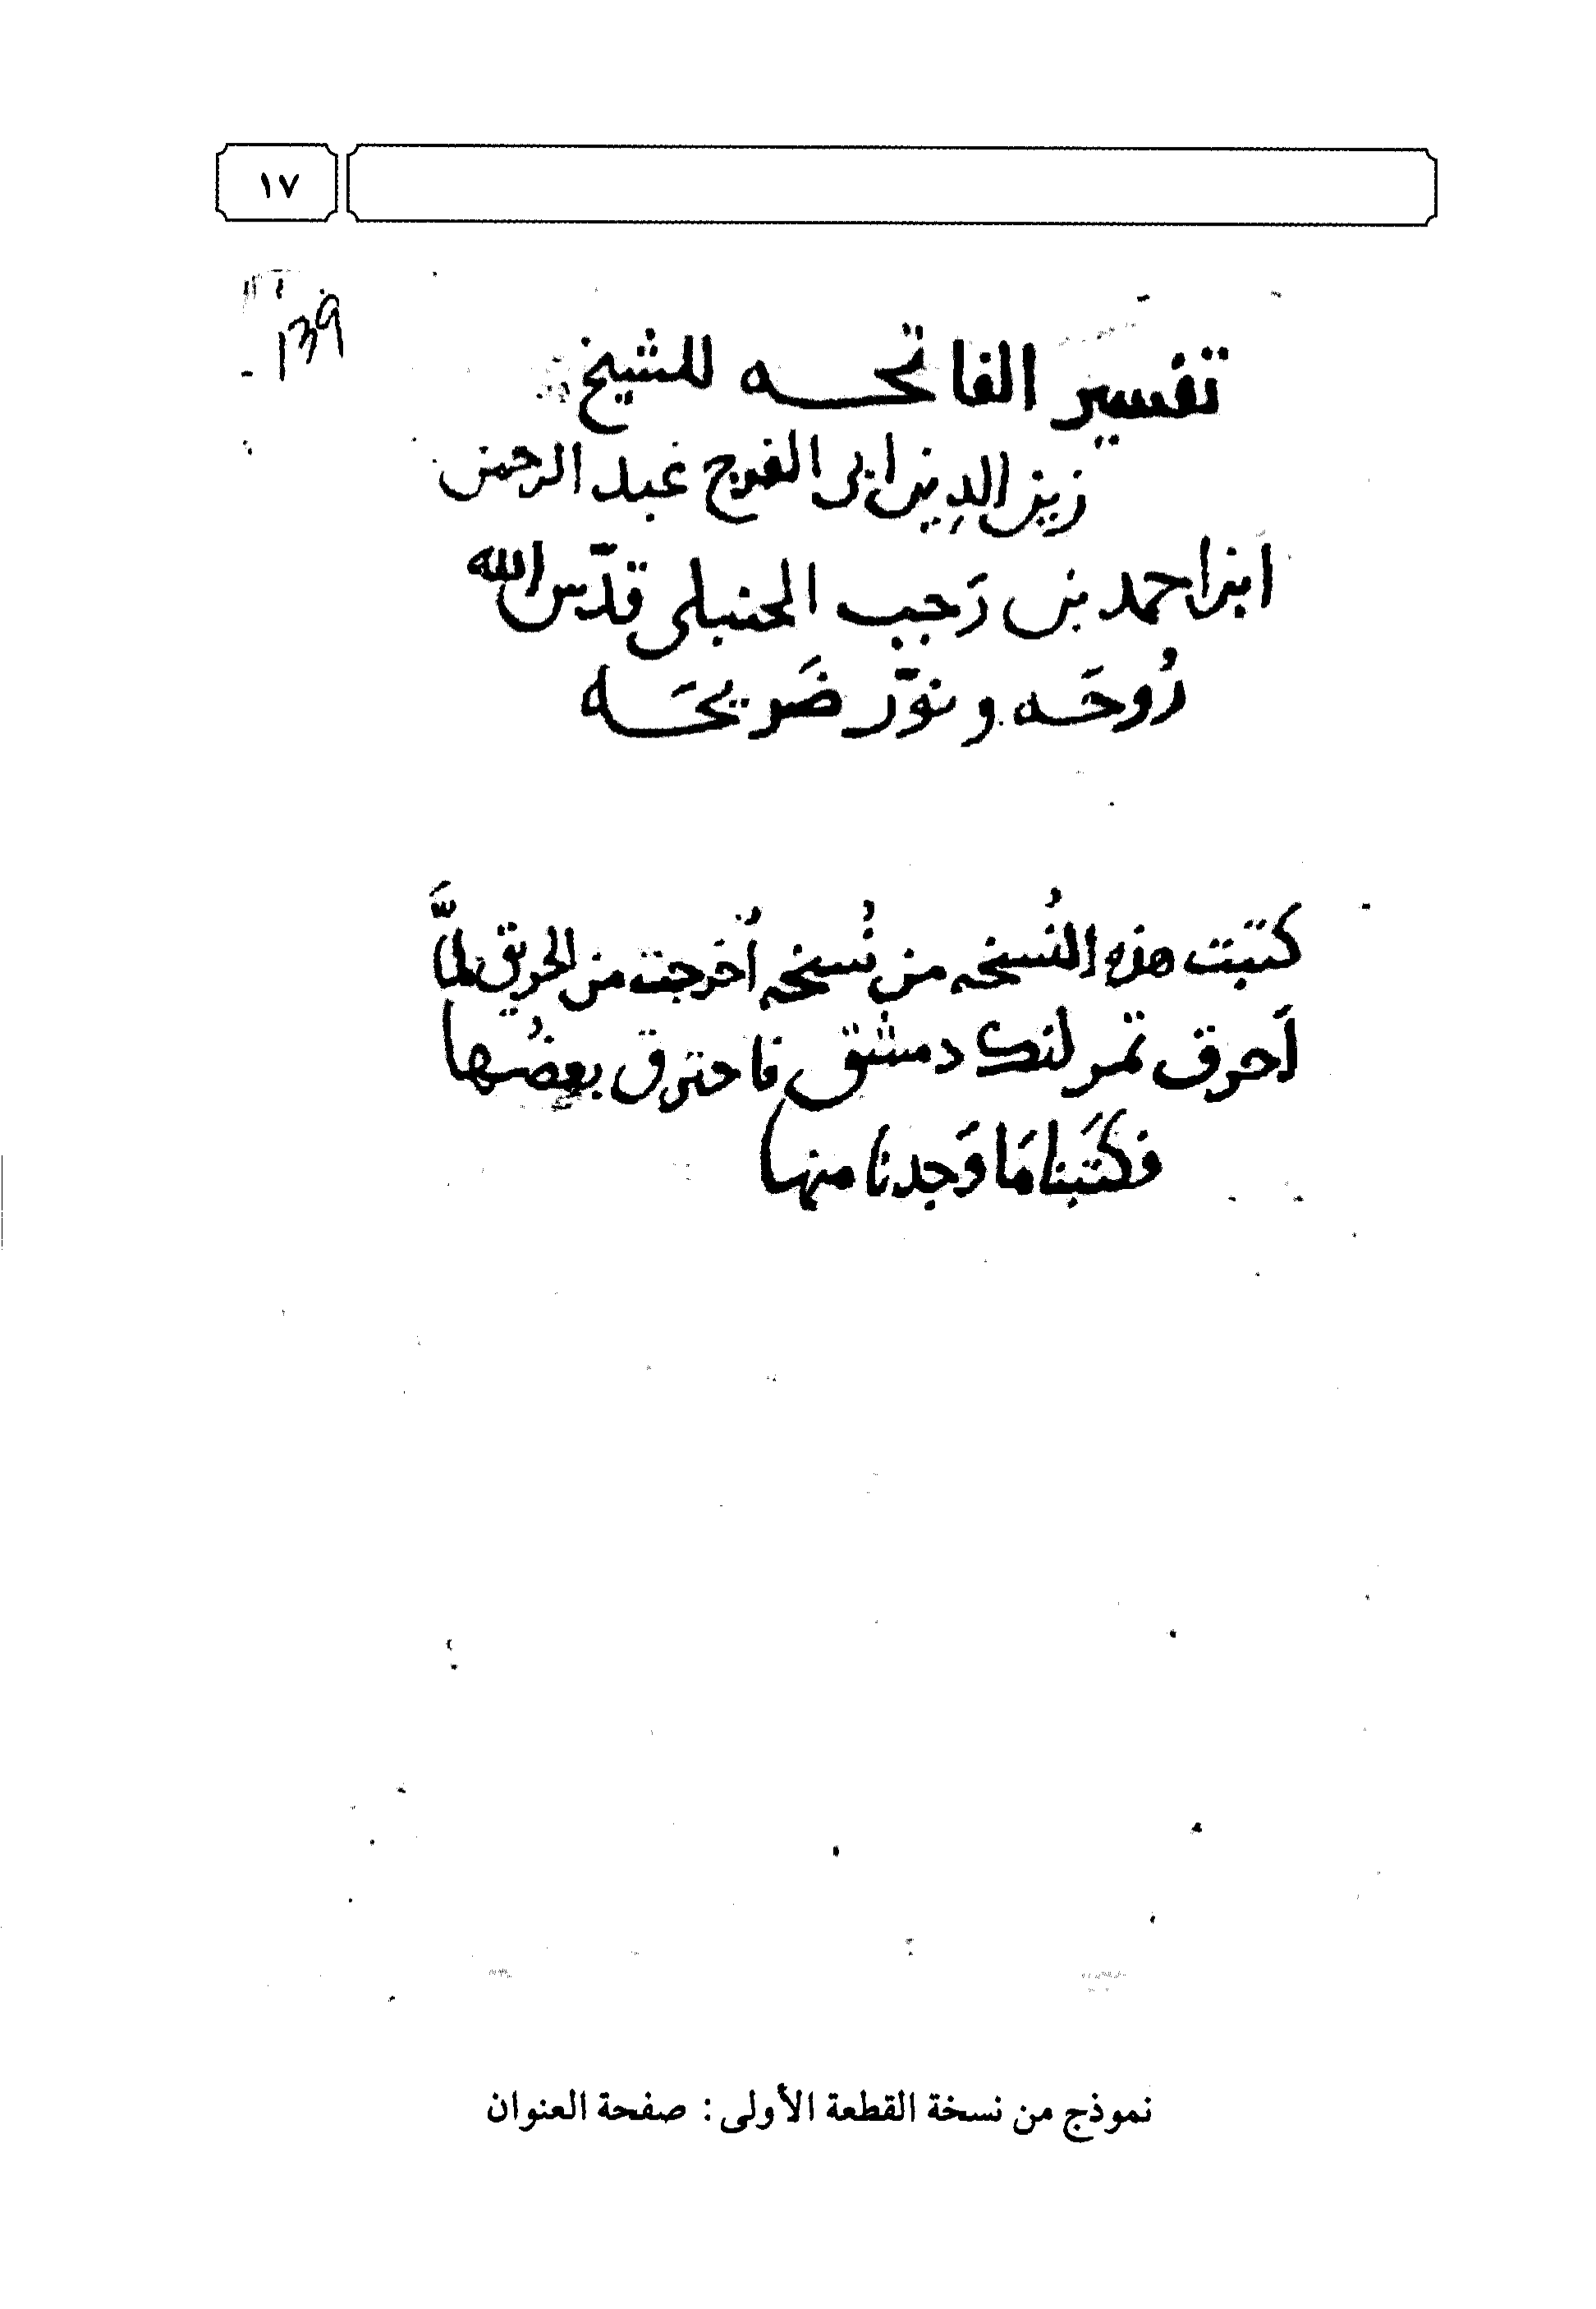 ١٧
139
تفسير الفاتحه للشيخ
زين الدين ابى الفرج عبد الرحمن
ابن احمد بن رَجب الحنبلى قدّس الله
رُوحَه ونوّر ضَريحَه
كتبت هذه النُسخه من نُسخه أُخرجت من الحريق لمَّا
أَحرق تمرلنك دمشق فاحترق بعضُها
فكَتَبنا مَا وَجدنا منها
نموذج من نسخة القطعة الأولى: صفحة العنوان